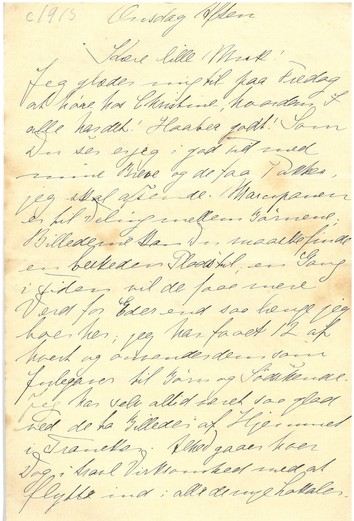 c 1915
Onsdag Aften
Kære lille Muk!
Jeg glæder mig til paa Fredag
at høre hos Christine, hvordan I
alle har det! Haaber godt! Som
Du ser er jeg i god Tid med
mine Breve og de faa Pakker,
jeg skal afsende. Marcipanen
er til Deling mellem Børnene.
Billederne kan Du maaske finde
en beskeden Plads til, en Gang
i Tiden vil de faae mere
Værd for Eder end saa længe jeg
boer her; jeg har faaet 12 af
hvert og anvender dem som
Julegaver til Børn og Södskende.
Jeg har selv altid været saa glad
ved de to Billeder af Hjemmet
i . gaaer hver
Dag i travl Virksomhed med at
flytte ind i alle de nye Lokaler.